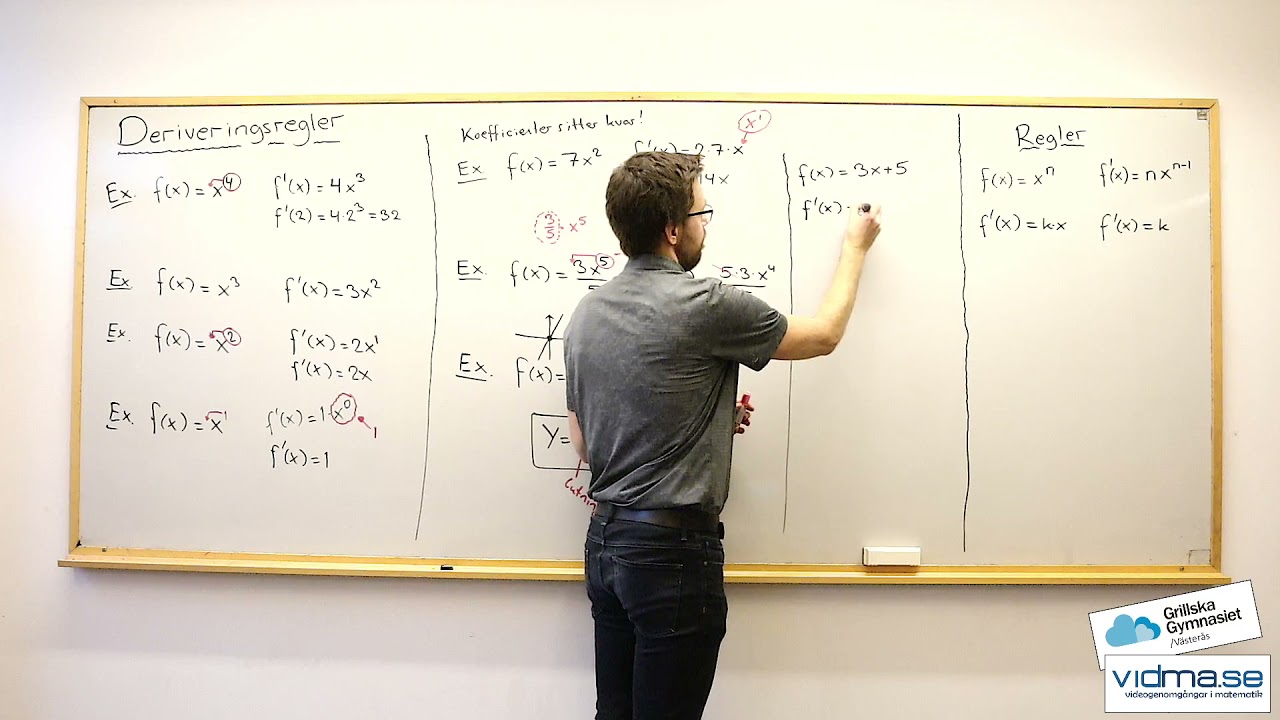 Deriveringsregler
Ex. f(x) = x⁴ f'(x) = 4x³
f'(2) = 4·2³ = 32
Ex f(x) = x³ f'(x) = 3x²
Ex. f(x) = x² f'(x) = 2x¹
f'(x) = 2x
Ex. f(x) = x¹ f'(x) = 1·x⁰
1
f'(x) = 1
Koefficienter sitter kvar!
x¹
Ex f(x) = 7x² f'(x) = 2·7·x
14x
3/5 x⁵
Ex. f(x) = 3x⁵ 5·3·x⁴
Ex. f(x) =
Y=
f(x) = 3x+5
f'(x)
Regler
f(x) = xⁿ f'(x) = nxⁿ⁻¹
f'(x) = k·x f'(x) = k
Grillska
Gymnasiet
/Västerås
vidma.se
videogenomgångar i matematik